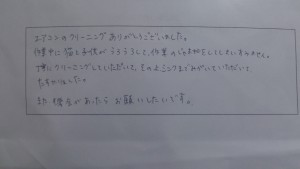 エアコンのクリーニングありがとうございました。
作業中に猫と子供がうろうろして、作業のじゃまをしてしまいすみません。
丁寧にクリーニングしていただいて、そのよこ までみがいていただいて
たすかりました。
又、機会があったらお願いしたいです。